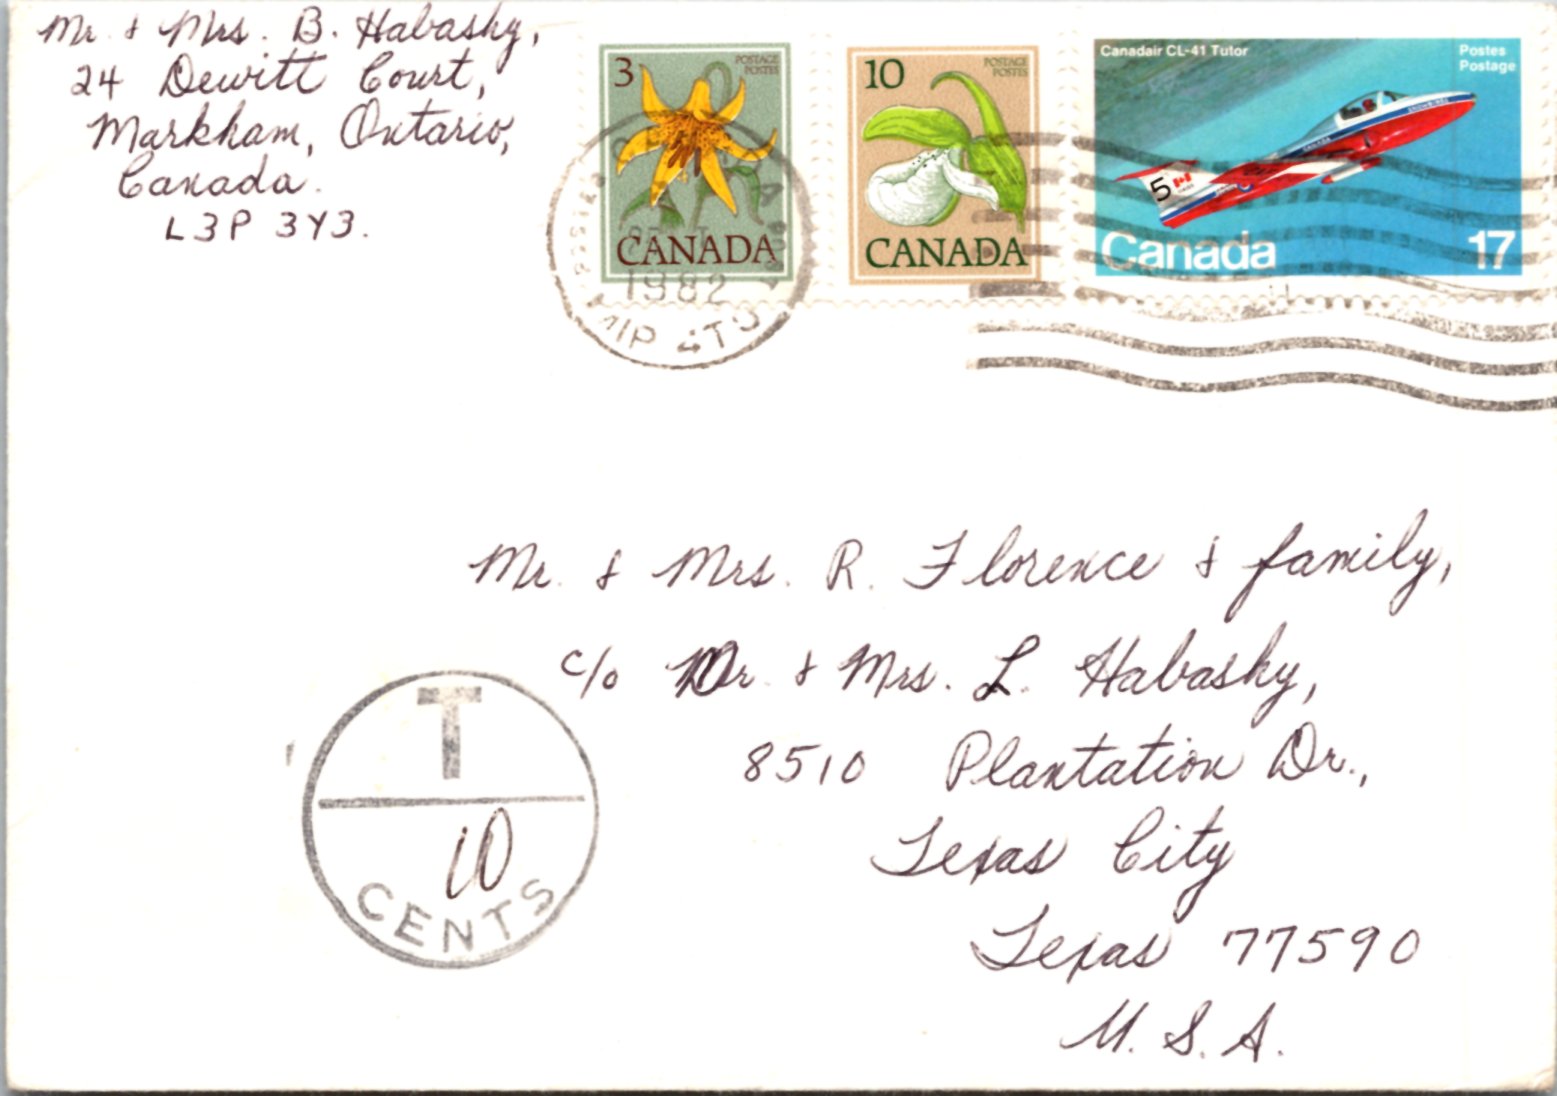 Mr. & Mrs. B. Habashy,
24 Dewitt Court,
Markham, Ontario,
Canada.
L3P 3Y3.
3
POSTAGE
POSTES
CANADA
10
POSTAGE
POSTES
CANADA
Canadair CL-41 Tutor
Postes
Postage
5
Canada
17
1982
M1P 4T0
Mr. & Mrs. R. Florence & family,
c/o Mr. & Mrs. L. Habashy,
8510 Plantation Dr.,
Texas City
Texas 77590
U.S.A.
T
10
CENTS